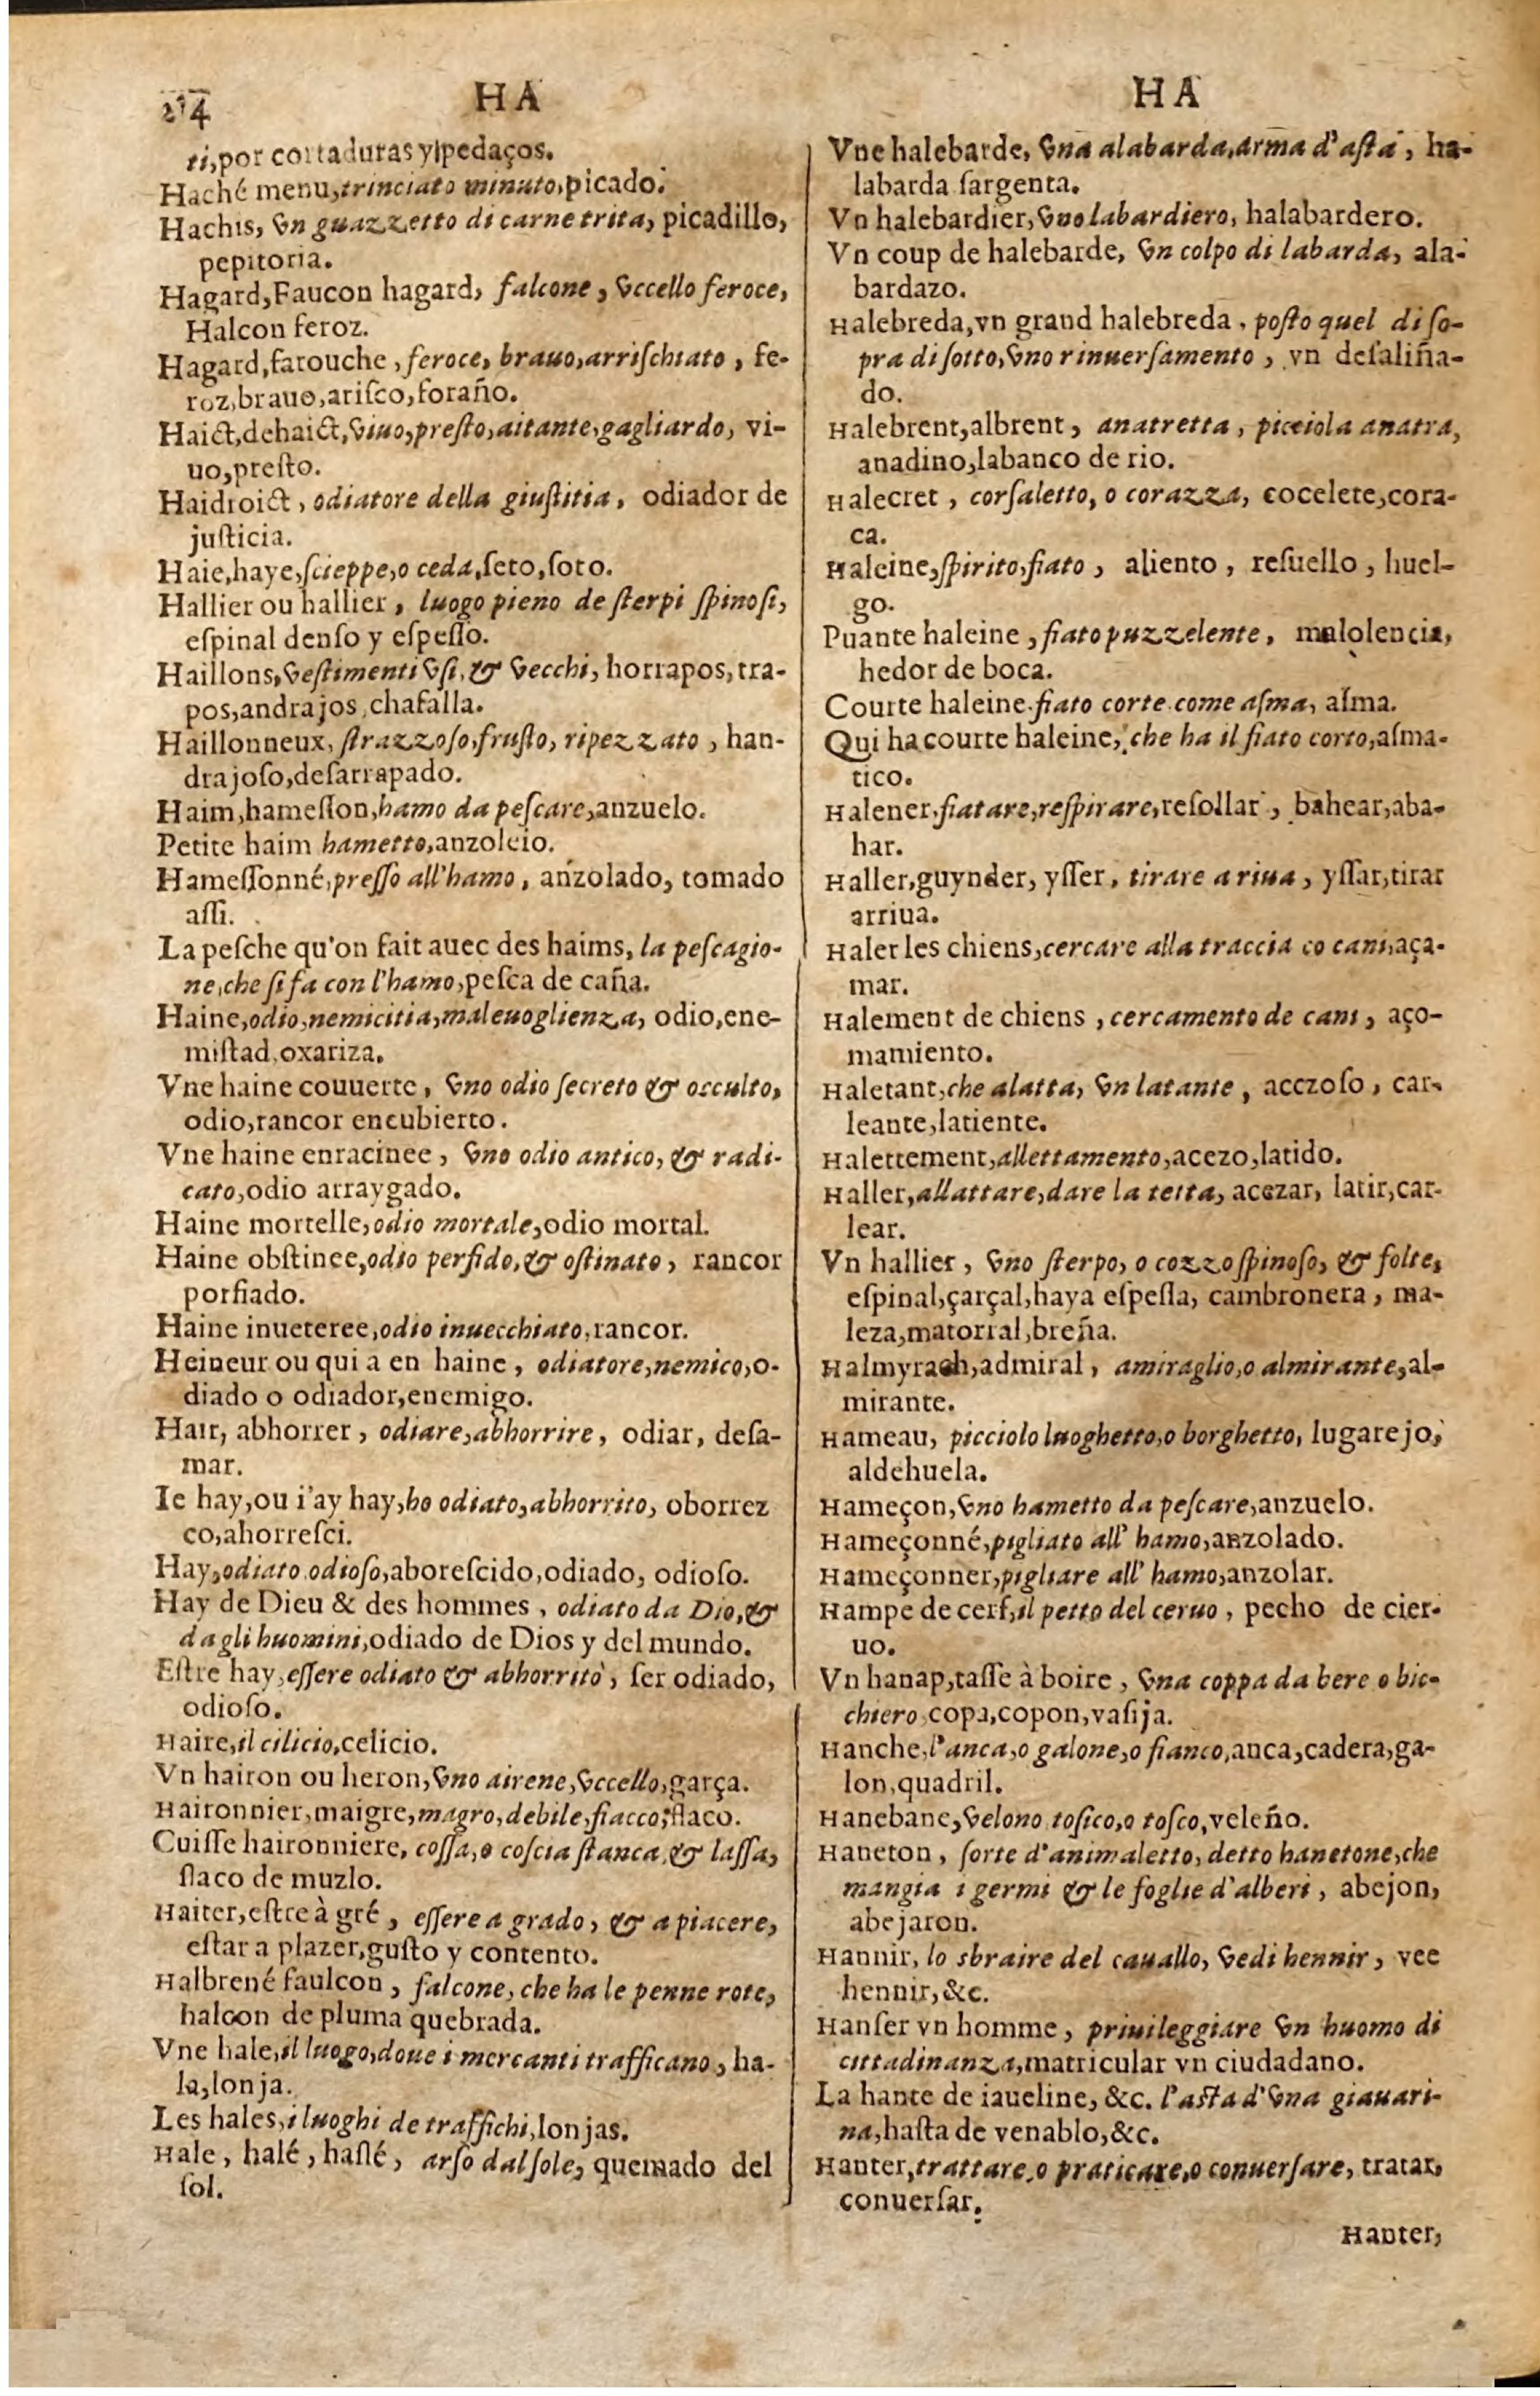 214
HA
ti,por cortaduras y pedaços.
Haché menu,trinciato minuto,picado.
Hachis, vn guazzetto di carne trita, picadillo,
pepitoria.
Hagard,Faucon hagard, falcone, vccello feroce,
Halcon feroz.
Hagard,farouche, feroce, brauo,arriſchiato, fe-
roz,brauo,ariſco,foraño.
Haict,dehaict,viuo,preſto,aitante,gagliardo, vi-
uo,preſto.
Haidroict, odiatore della giuſtitia, odiador de
juſticia.
Haie,haye,ſcieppe,o ceda,ſeto,ſoto.
Hallier ou hallier, luogo pieno de ſterpi ſpinoſi,
eſpinal denſo y eſpeſſo.
Haillons,veſtimenti vſi, & vecchi, horrapos, tra-
pos,andrajos,chafalla.
Haillonneux, ſtrazzoſo,fruſto, ripezzato, han-
drajoſo,deſarrapado.
Haim,hameſſon,hamo da peſcare,anzuelo.
Petite haim hametto,anzoleio.
Hameſſonné,preſſo all'hamo, anzolado, tomado
aſſi.
La peſche qu'on fait auec des haims, la peſcagio-
ne,che ſi fa con l'hamo,peſca de caña.
Haine,odio,nemicitia,maleuoglienza, odio,ene-
miſtad,oxariza.
Vne haine couuerte, vno odio ſecreto & occulto,
odio,rancor encubierto.
Vne haine enracinee, vno odio antico, & radi-
cato,odio arraygado.
Haine mortelle,odio mortale,odio mortal.
Haine obſtinee,odio perfido,& oſtinato, rancor
porfiado.
Haine inueteree,odio inuecchiato,rancor.
Heineur ou qui a en haine, odiatore,nemico,o-
diado o odiador,enemigo.
Hair, abhorrer, odiare,abhorrire, odiar, deſa-
mar.
Ie hay,ou i'ay hay,ho odiato,abhorrito, oborrez
co,ahorreſci.
Hay,odiato odioſo,aboreſcido,odiado, odioſo.
Hay de Dieu & des hommes, odiato da Dio,&
da gli huomini,odiado de Dios y del mundo.
Eſtre hay,eſſere odiato & abhorrito, ſer odiado,
odioſo.
Haire,il cilicio,celicio.
Vn hairon ou heron,vno airene,vccello,garça.
Haironnier,maigre,magro,debile,fiacco,flaco.
Cuiſſe haironniere, coſſa,o coſcia ſtanca,& laſſa,
flaco de muzlo.
Haiter,eſtre à gré, eſſere a grado, & a piacere,
eſtar a plazer,guſto y contento.
Halbrené faulcon, falcone, che ha le penne rote,
halcon de pluma quebrada.
Vne hale,il luogo,doue i mercanti trafficano, ha-
la,lonja.
Les hales,i luoghi de traffichi,lonjas.
Hale, halé, haſlé, arſo dal ſole, quemado del
ſol.
HA
Vne halebarde, vna alabarda,arma d'aſta, ha-
labarda ſargenta.
Vn halebardier,vno labardiero, halabardero.
Vn coup de halebarde, vn colpo di labarda, ala-
bardazo.
Halebreda,vn grand halebreda, poſto quel di ſo-
pra di ſotto,vno rinuerſamento, vn deſaliña-
do.
Halebrent,albrent, anatretta, picciola anatra,
anadino,labanco de rio.
Halecret, corſaletto, o corazza, cocelete,cora-
ca.
Haleine,ſpirito,fiato, aliento, reſuello, huel-
go.
Puante haleine, fiato puzzelente, malolencia,
hedor de boca.
Courte haleine.fiato corte come aſma, aſma.
Qui ha courte haleine, che ha il fiato corto,aſma-
tico.
Halener,fiatare,reſpirare,reſollar, bahear,aba-
har.
Haller,guynder, yſſer, tirare a riua, yſſar,tirar
arriua.
Haler les chiens,cercare alla traccia co cani,aça-
mar.
Halement de chiens, cercamento de cani, aço-
mamiento.
Haletant,che alatta, vn latante, aceζoſo, car-
leante,latiente.
Halettement,allettamento,acezo,latido.
Haller,allattare,dare la tetta, acezar, latir,car-
lear.
Vn hallier, vno ſterpo, o cozzo ſpinoſo, & folte,
eſpinal,çarçal,haya eſpeſſa, cambronera, ma-
leza,matorral,breña.
Halmyrach,admiral, amiraglio,o almirante,al-
mirante.
Hameau, picciolo luoghetto,o borghetto, lugarejo,
aldehuela.
Hameçon,vno hametto da peſcare,anzuelo.
Hameçonné,pigliato all' hamo,anzolado.
Hameçonner,pigliare all' hamo,anzolar.
Hampe de cerf,il petto del ceruo, pecho de cier-
uo.
Vn hanap,taſſe à boire, vna coppa da bere o bic-
chiero copa,copon,vaſija.
Hanche,l'anca,o galone,o fianco,anca,cadera,ga-
lon,quadril.
Hanebane,velono toſico,o toſco,veleño.
Haneton, ſorte d'animaletto, detto hanetone,che
mangia i germi & le foglie d'alberi, abejon,
abejaron.
Hannir, lo sbraire del cauallo, vedi hennir, vee
hennir,&c.
Hanſer vn homme, priuileggiare vn huomo di
cittadinanza,matricular vn ciudadano.
La hante de iaueline, &c. l'aſta d'vna giauari-
na,haſta de venablo,&c.
Hanter,trattare,o praticare,o conuerſare, tratar,
conuerſar.
Hanter,